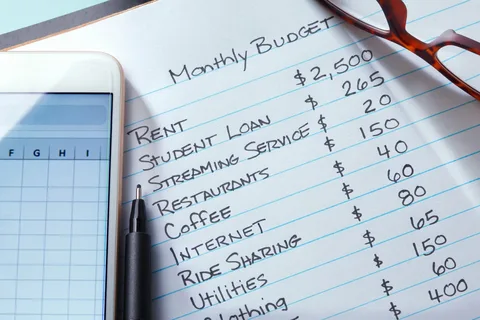 F G H I
Monthly Budget
RENT $ 2,500
STUDENT LOAN $ 265
STREAMING SERVICE $ 20
RESTAURANTS $ 150
COFFEE $ 40
INTERNET $ 60
RIDE SHARING $ 80
Utilities $ 65
Clothing $ 150
$ 60
$ 400